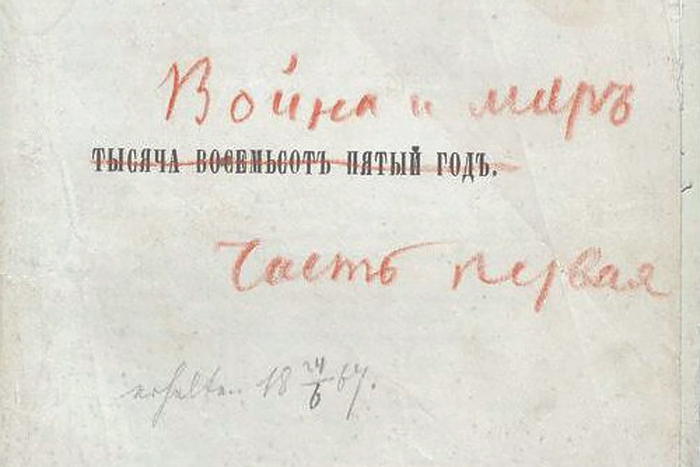 Война и миръ
ТЫСЯЧА ВОСЕМЬСОТЪ ПЯТЫЙ ГОДЪ.
Часть первая
erhalten 18 24/6 67.